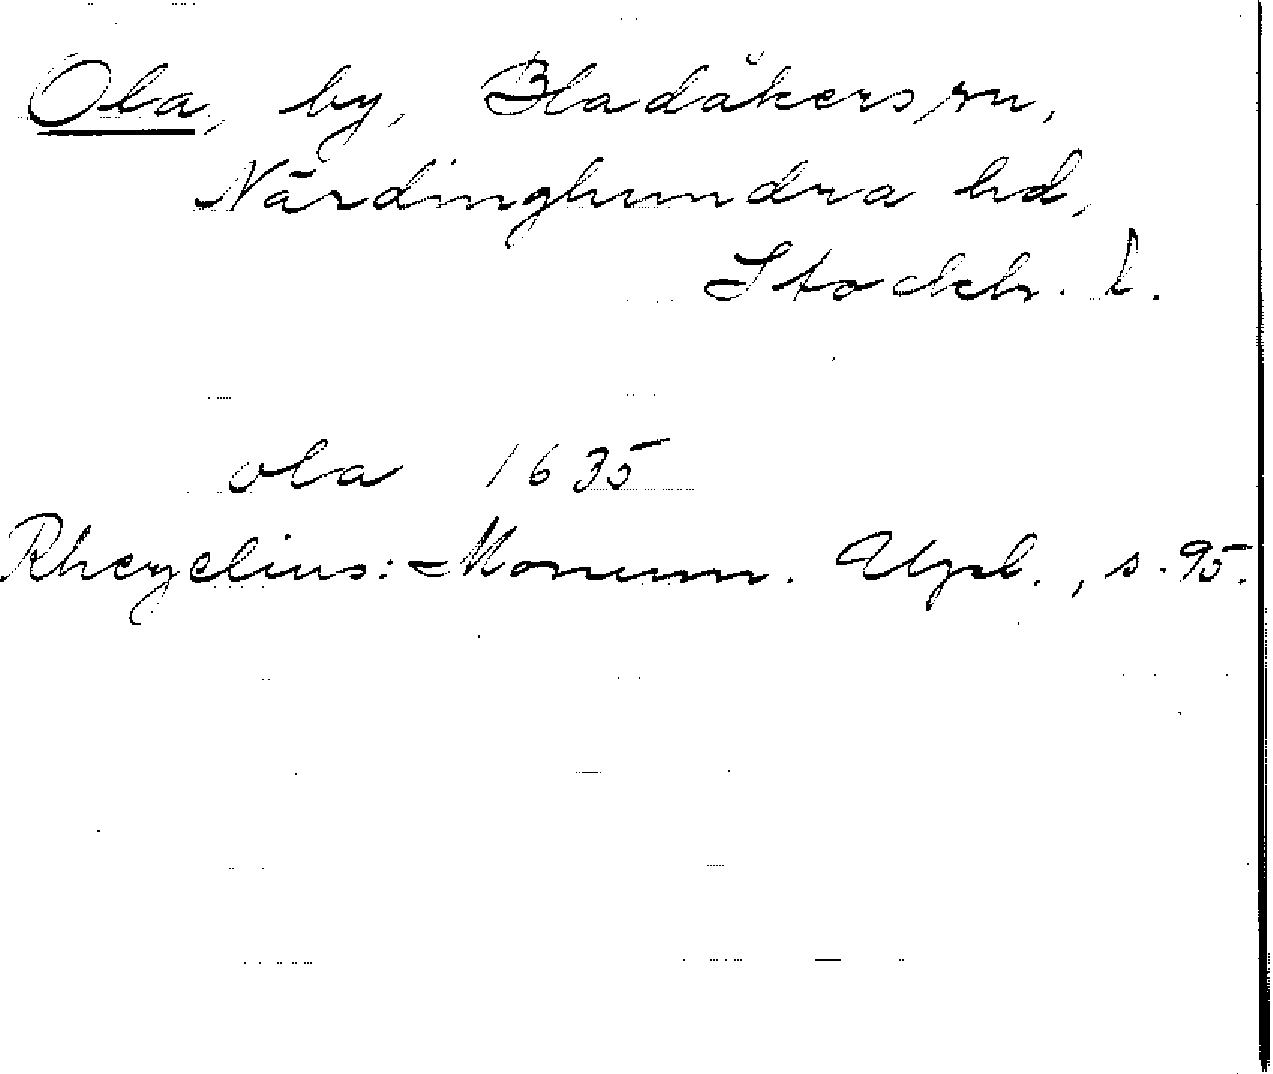 Ola, by, Bladåkers sn,
Närdinghundra hd,
Stockh. l.
ola 1635
Rhezelius: Monum. Upl., s. 95.